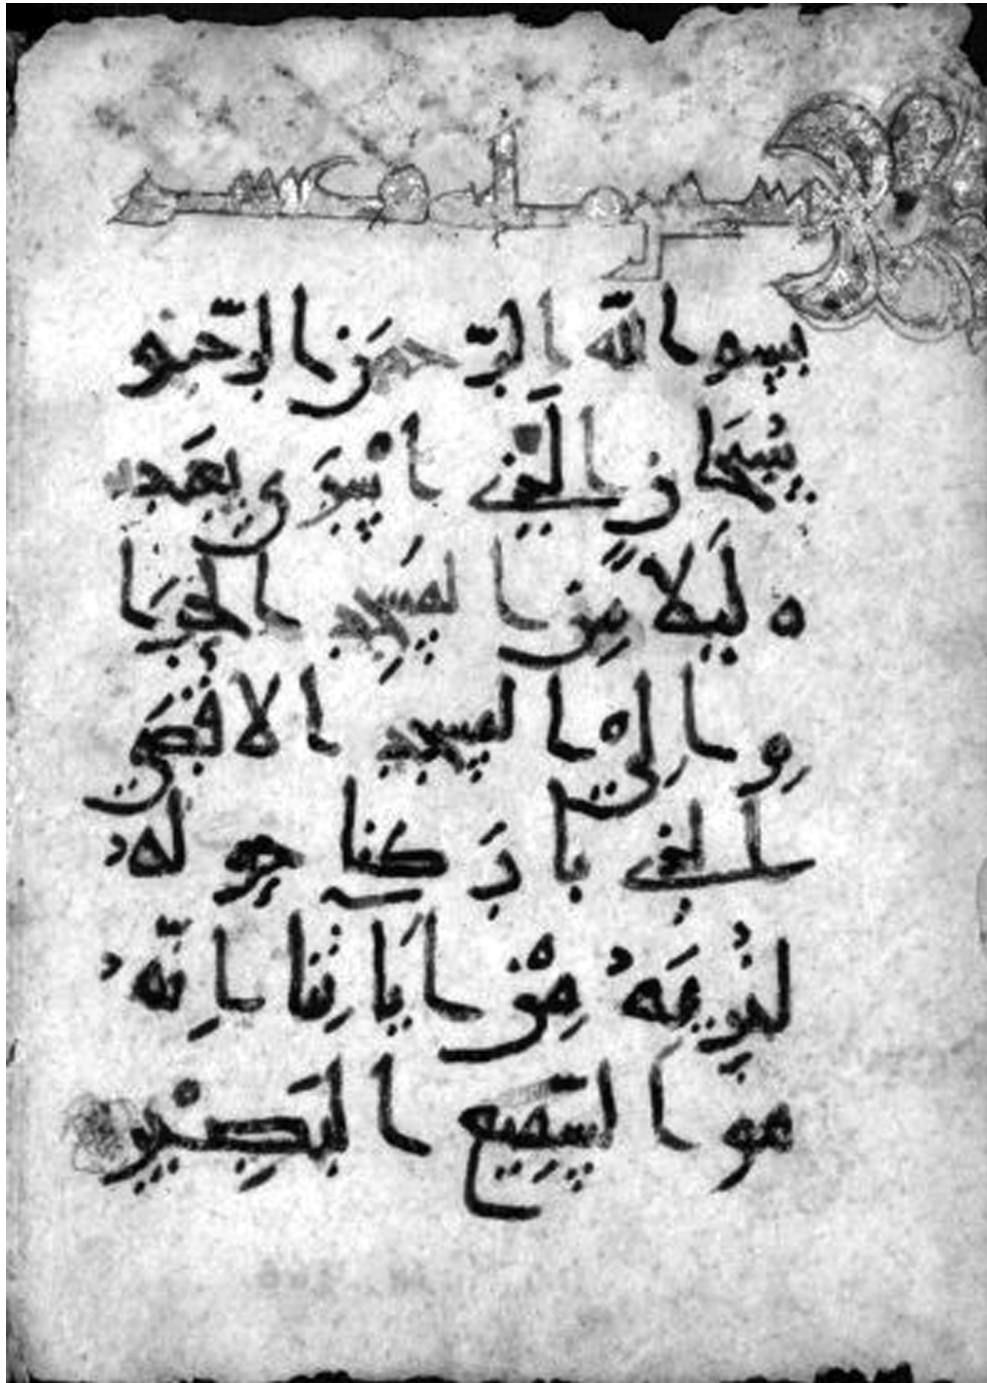 بِسمِ اللّهِ الرَّحمَنِ الرَّحِيمِ
سُبحَانَ الَّذِي أَسْرَى بِعَبدِ
هِ لَيلًا مِنَ المَسجِدِ الحَرَا
مِ إِلَى المَسجِدِ الأَقْصَى
الَّذِي بَارَكنَا حَولَهُ
لِنُرِيَهُ مِنْ آيَاتِنَا إِنَّهُ
هُوَ السَّمِيعُ البَصِيْرُ